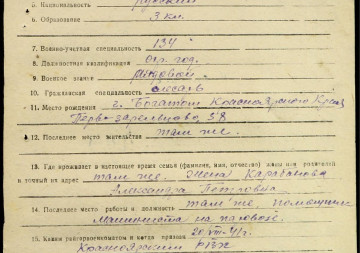 5. Национальность русский
6. Образование 3 кл.
7. Военно-учетная специальность 134
8. Должностная квалификация огр. год.
9. Военное звание рядовой
10. Гражданская специальность слесарь
11. Место рождения г. Боготол Красноярского Края,
58
12. Последнее место жительства там же.
13. Где проживает в настоящее время семья (фамилия, имя, отчество) жены или родителей
и точный их адрес там же. жена Карабанова
Александра Петровна
14. Последнее место работы и должность там же, помощник
машиниста на паровозе.
15. Каким райгорвоенкоматом и когда призван 20/VII-41г.
Красноярским РВК